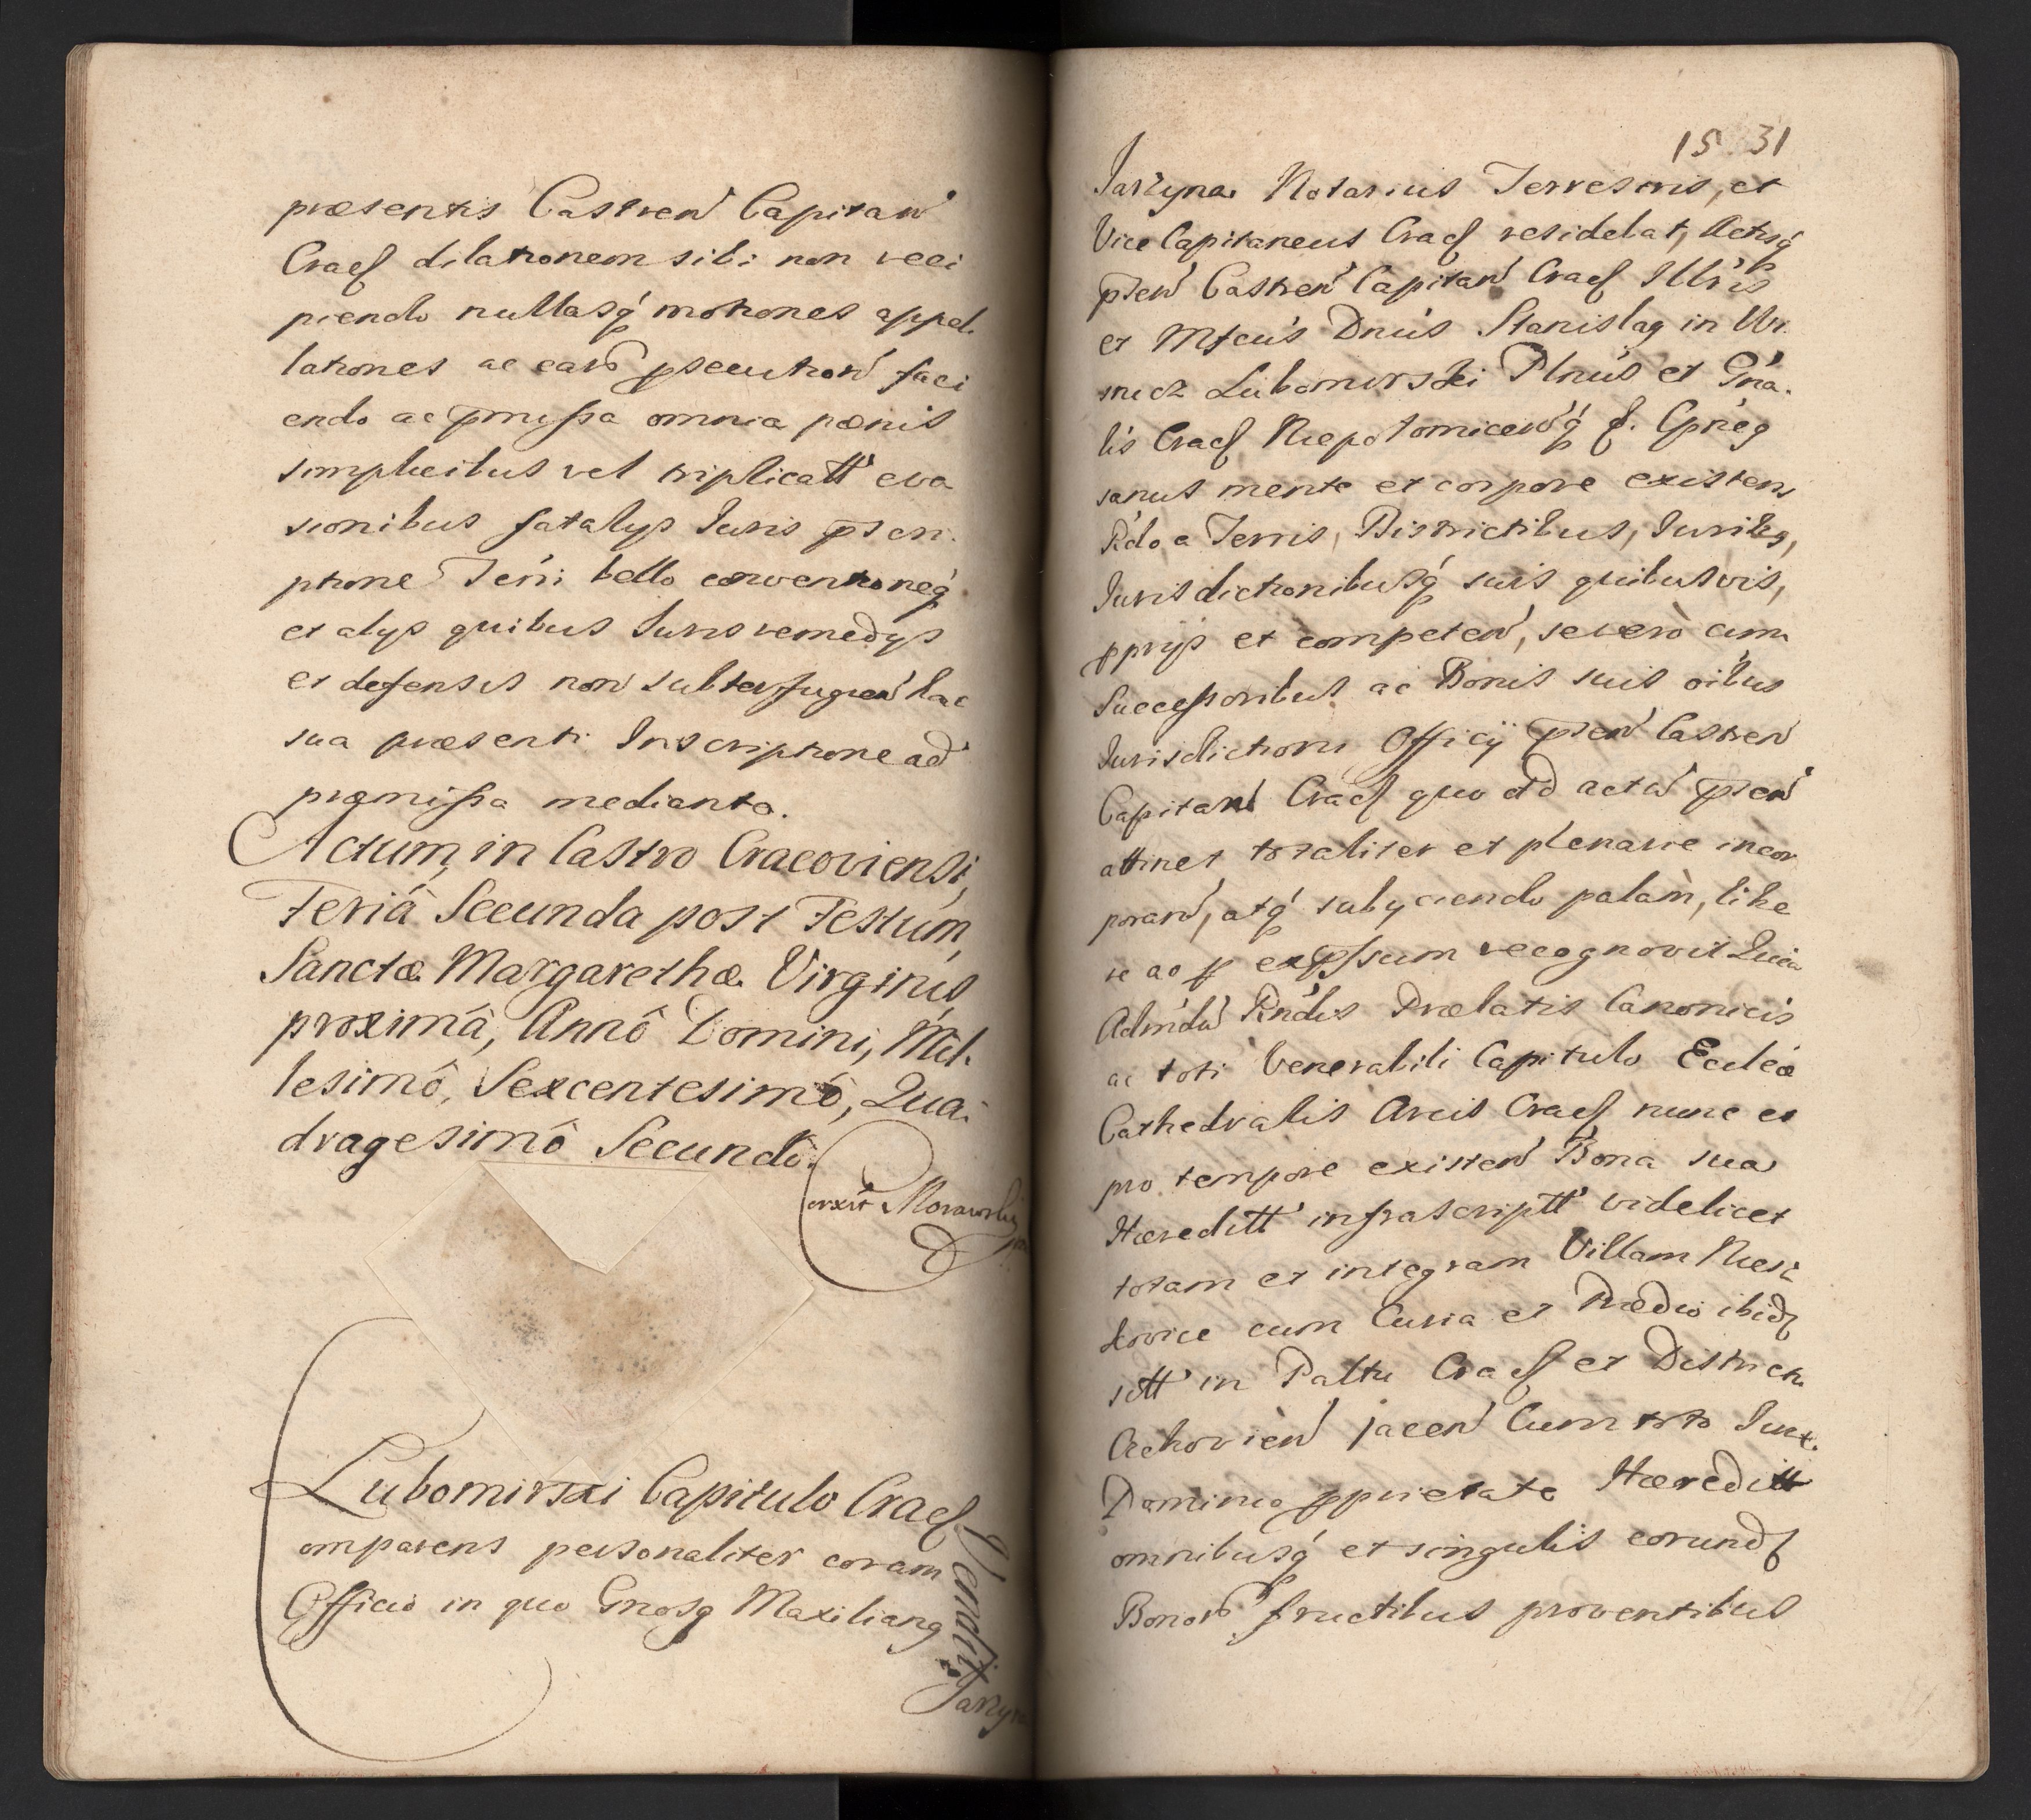 præsentis Castren Capitan
Cracs dilationem sibi non reci
piendo nullasq motiones appel
lationes ac earū psecution faci
endo ac pmissa omnia pænis
simplicibus vel triplicatt eva
sionibus fatalys Juris pscri
ptione Terri bello conventioneq
et alys quibus Juris remedys
et defensis non subterfugien hac
sua præsenti Inscriptione ad
præmissa mediante.
Actum, in Castro Cracoviensi,
Feriâ Secunda post Festum,
Sanctæ Margarethæ Virginis
proximâ, Annô Domini, Mil-
lesimô, Sexcentesimô, Qua-
dragesimô Secundô.
Morawski
Lubomirski Capitulo Cracs
Vendit
omparens personaliter coram
Officio in quo Gnosq Maxilianq
Jarzyna
15 31
Jarzyna Notarius Terrestris, et
Vice Capitaneus Cracs residebat, Actisq
pten Castren Capitan Cracs Illris
et Mfcus Dnus Stanislaq in Wi-
snicz Lubomirski Plnus et Gna-
lis Cracs Niepolomicenq
sanus mente et corpore existens
Rdo a Terris, Districtibus, Juribq,
Jurisdictionibusq suis quibusvis,
pprijs et competen, se vero cum
Successoribus ac Bonis suis oibus
Jurisdictioni Officij pten Castren
Capitan Cracs quo ad actu pten
attinet totaliter et plenarie incor
poran, atq subyciendo palam, libe
re ac p expssum recognovit Quia
Admdu Rndis Prælatis Canonicis
ac toti Venerabili Capitulo Ecclæ
Cathedralis Arcis Cracs nunc et
pro tempore existen Bona sua
Hæreditt infrascriptt videlicet
totam et integram Villam Niesz
kowice cum Curia et Prædio ibid
sitt in Paltu Cracs et Districtu
Czchovien jacen Cum toto Jure
Dominio pprietate Hæreditt
omnibusq et singulis eorund
Bonorū fructibus proventibus